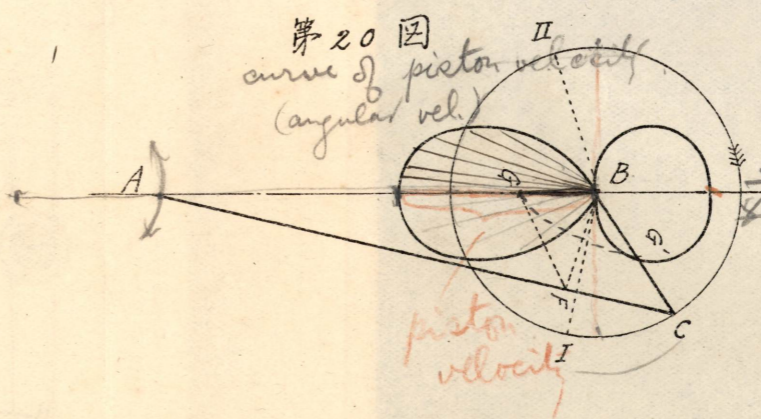 第20図
II
curve of piston velocity
(angular vel.)
A
B
G
G'
F
C
I
piston
velocity